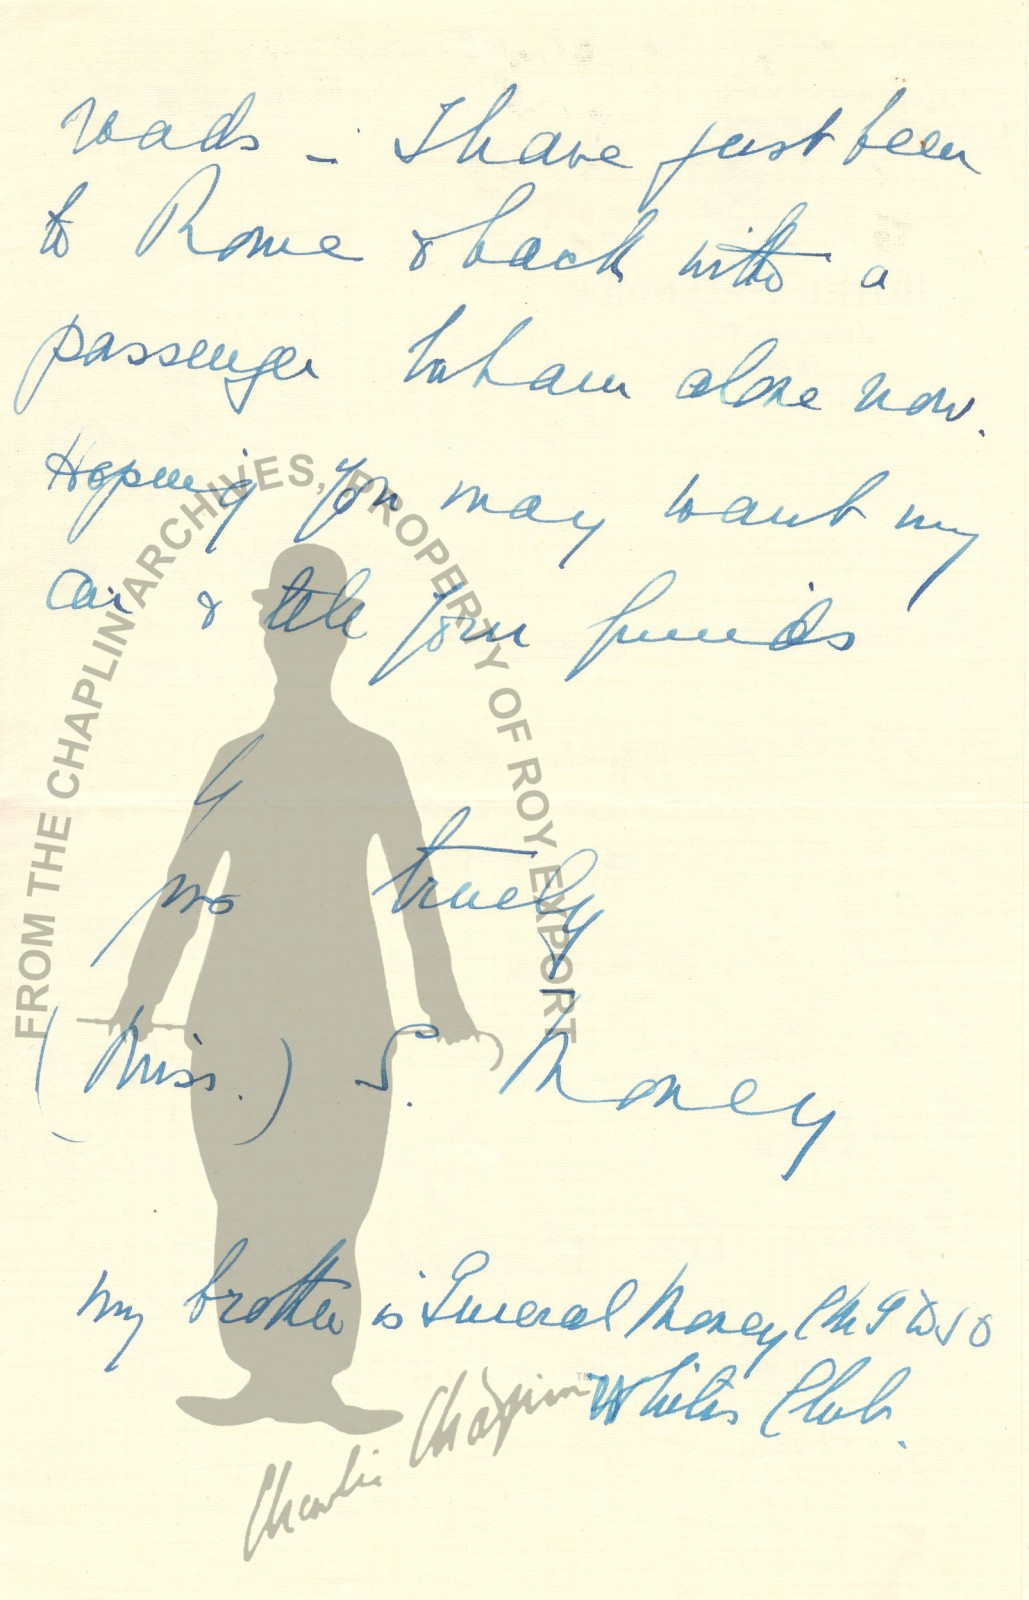 roads - I have just been
to Rome & back with a
passenger but am alone now.
Hoping you may want my
Car & tell your friends
yrs truely
(Miss.) S. Money
my brother is General Money CMG DSO
Whites Club.
FROM THE CHAPLIN ARCHIVES, PROPERTY OF ROY EXPORT
Charlie Chaplin™